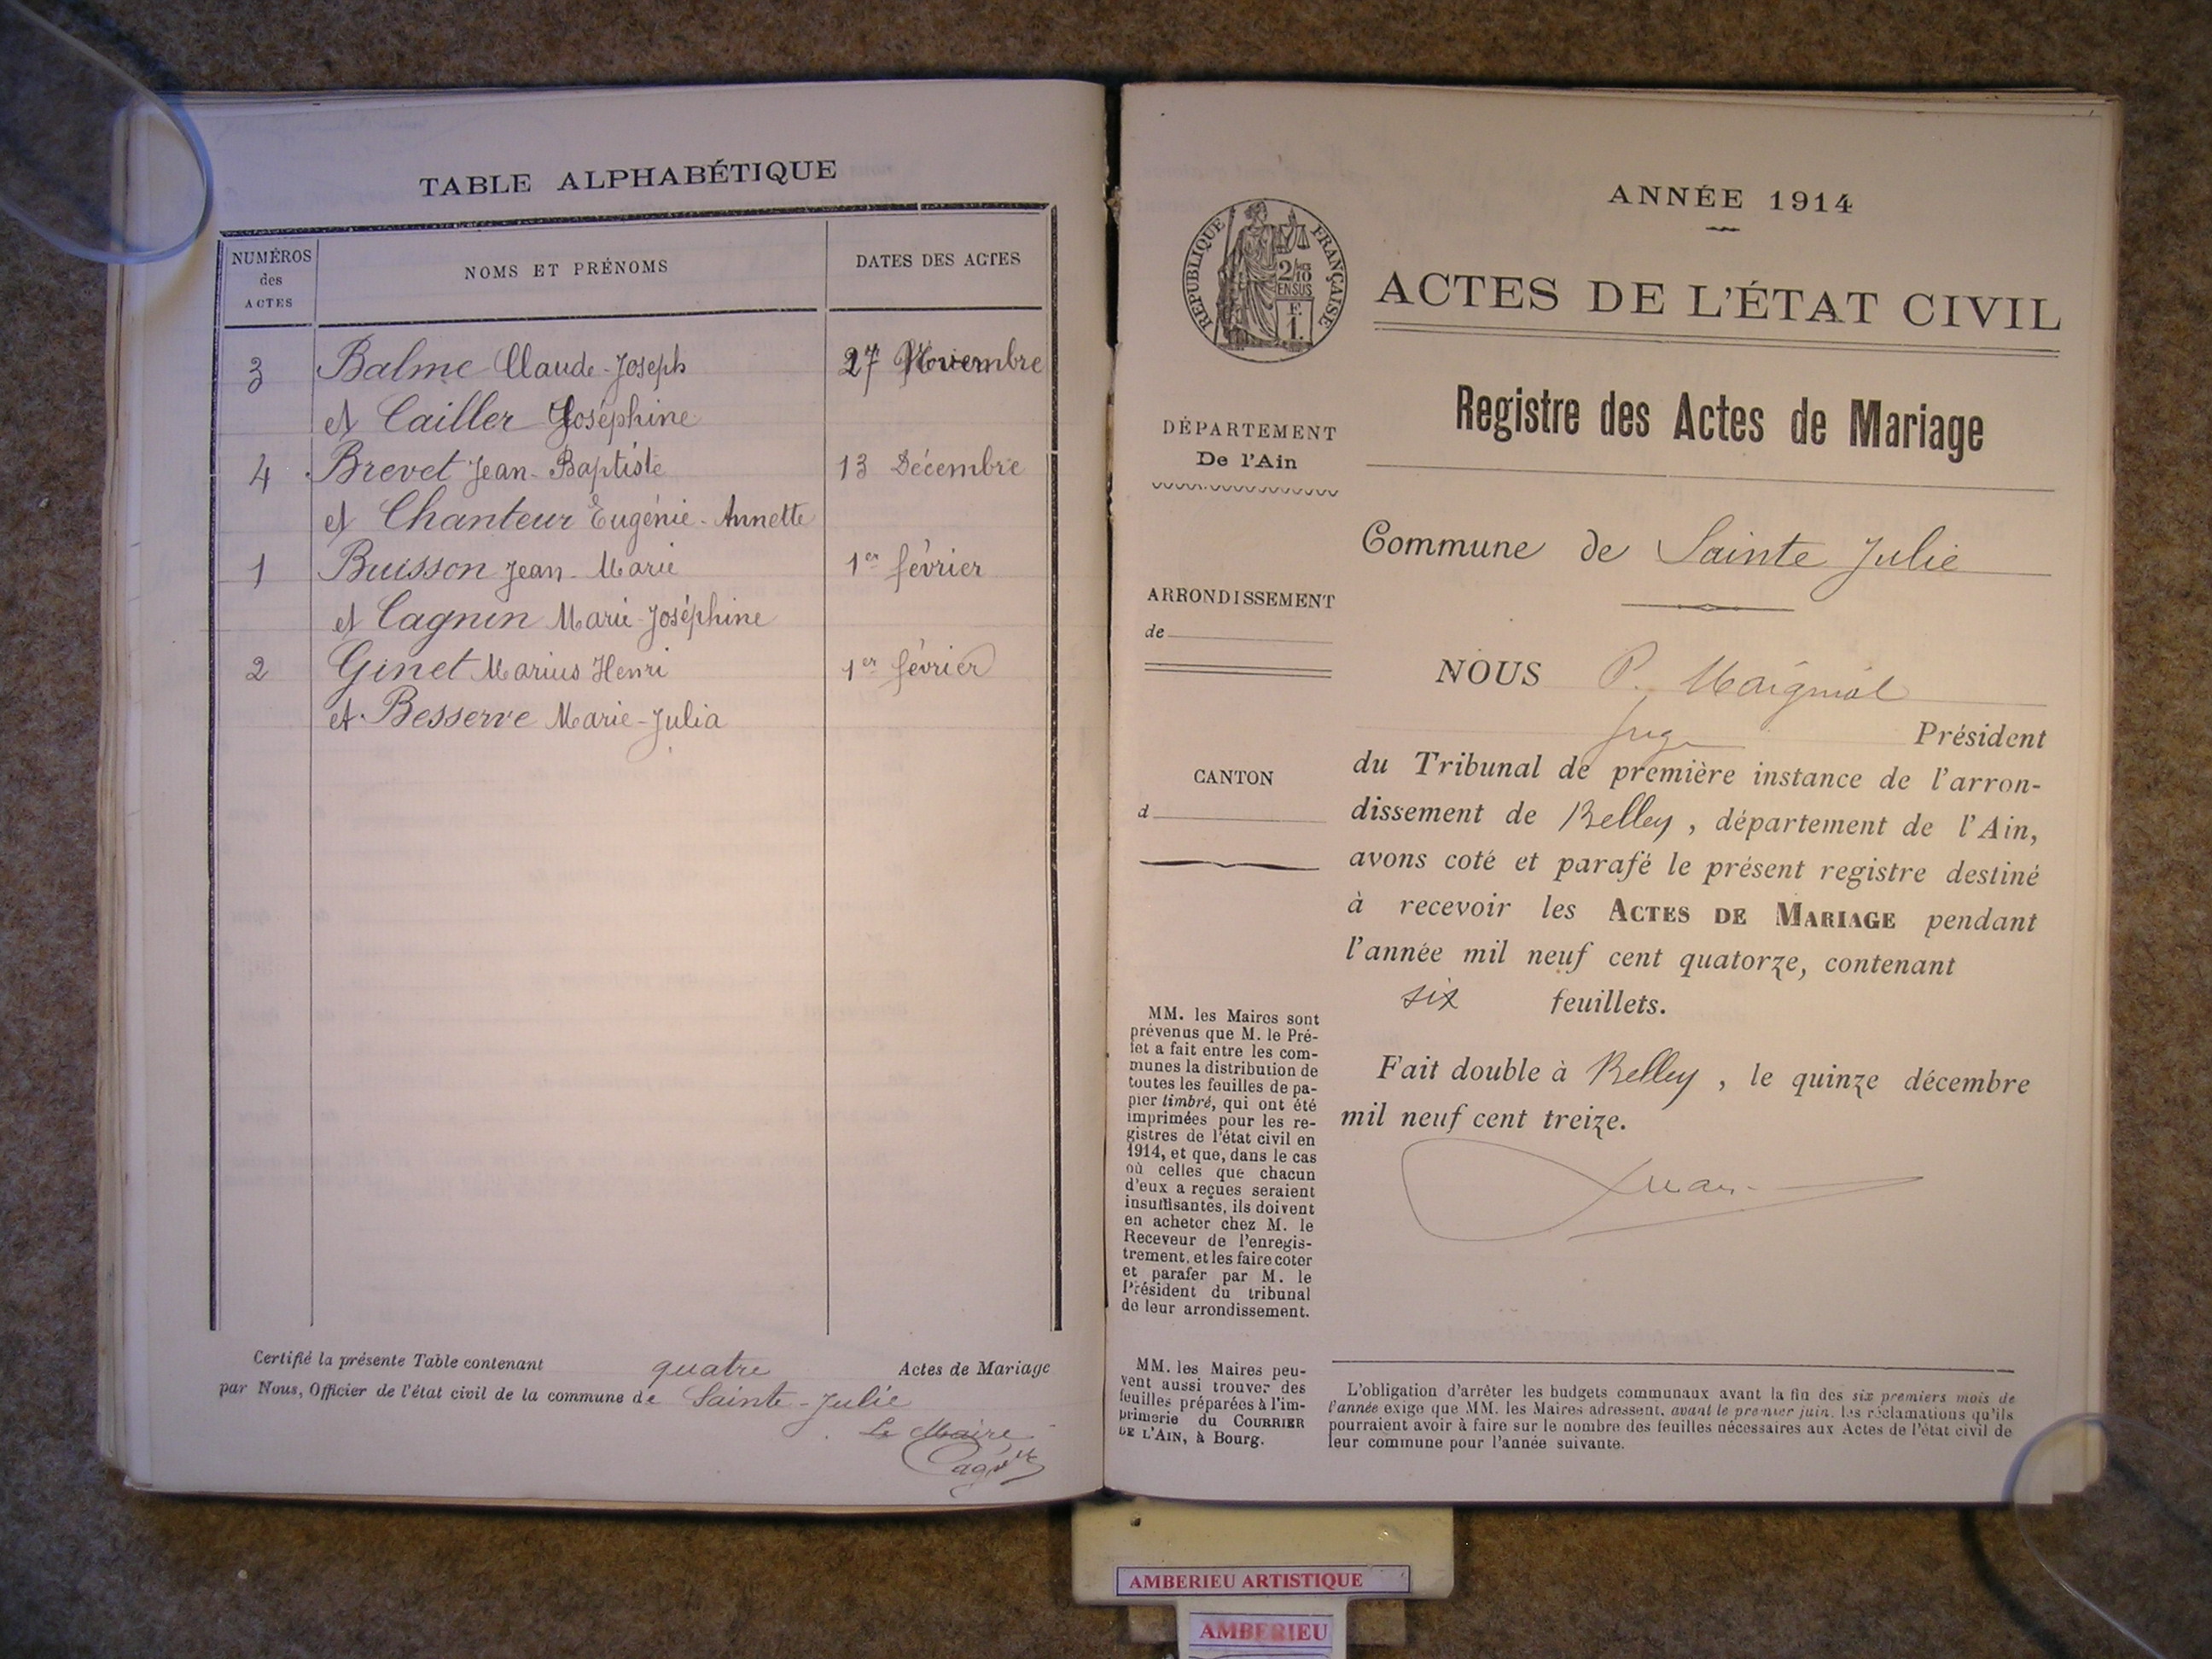 TABLE ALPHABÉTIQUE
NUMÉROS des ACTES
NOMS ET PRÉNOMS
DATES DES ACTES
3 Balme Claude-Joseph 27 Novembre
et Cailler Joséphine
4 Brevet Jean-Baptiste 13 Décembre
et Chanteur Eugénie-Annette
1 Buisson Jean-Marie 1er février
et Cagnin Marie-Joséphine
2 Ginet Marius Henri 1er février
et Besserve Marie-Julia
Certifié la présente Table contenant quatre Actes de Mariage
par Nous, Officier de l'état civil de la commune de Sainte-Julie
Le Maire
ANNÉE 1914
RÉPUBLIQUE FRANÇAISE
2/10
EN SUS
F.
1.
ACTES DE L'ÉTAT CIVIL
Registre des Actes de Mariage
DÉPARTEMENT
De l'Ain
ARRONDISSEMENT
de
CANTON
d
MM. les Maires sont
prévenus que M. le Pré-
fet a fait entre les com-
munes la distribution de
toutes les feuilles de pa-
pier timbré, qui ont été
imprimées pour les re-
gistres de l'état civil en
1914, et que, dans le cas
où celles que chacun
d'eux a reçues seraient
insuffisantes, ils doivent
en acheter chez M. le
Receveur de l'enregis-
trement, et les faire coter
et parafer par M. le
Président du tribunal
de leur arrondissement.
MM. les Maires peu-
vent aussi trouver des
feuilles préparées à l'im-
primerie du COURRIER
DE L'AIN, à Bourg.
Commune de Sainte Julie
NOUS P.
Juge Président
du Tribunal de première instance de l'arron-
dissement de Belley, département de l'Ain,
avons coté et parafé le présent registre destiné
à recevoir les ACTES DE MARIAGE pendant
l'année mil neuf cent quatorze, contenant
six feuillets.
Fait double à Belley, le quinze décembre
mil neuf cent treize.
L'obligation d'arrêter les budgets communaux avant la fin des six premiers mois de
l'année exige que MM. les Maires adressent, avant le premier juin, les réclamations qu'ils
pourraient avoir à faire sur le nombre des feuilles nécessaires aux Actes de l'état civil de
leur commune pour l'année suivante.
AMBERIEU ARTISTIQUE
AMBERIEU